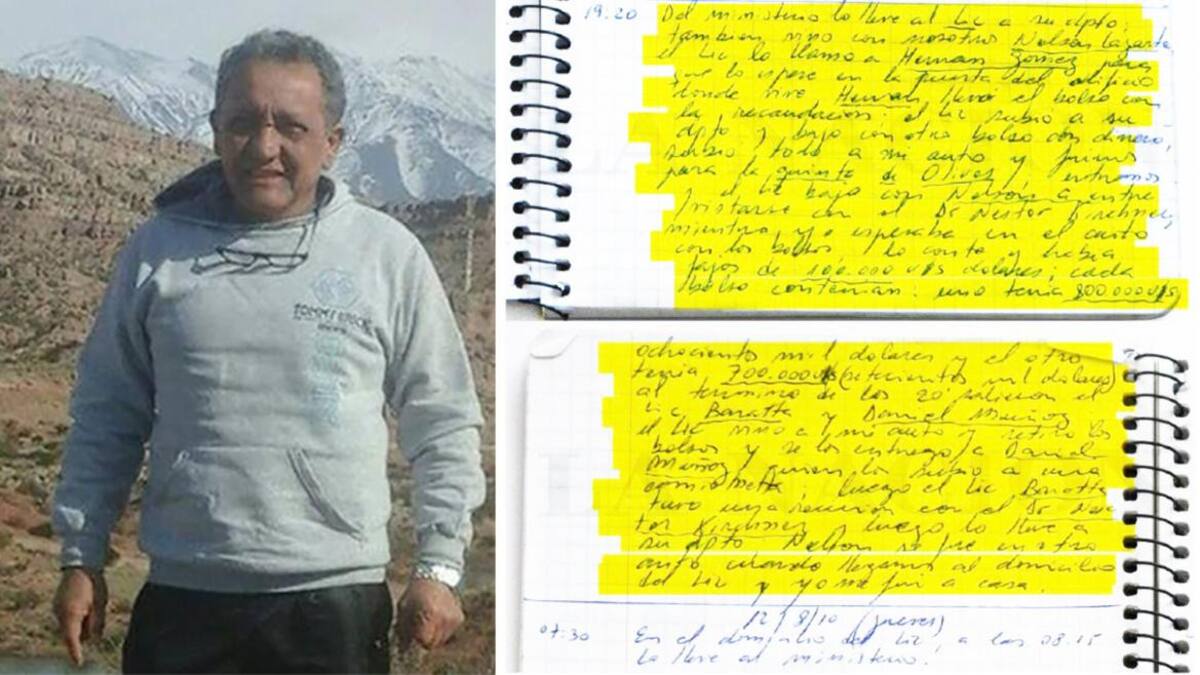 TOMMY HILFIGER
19:20 Del ministerio lo lleve al Lic a su dpto,
tambien vino con nosotro Nelson Lazarte
el Lic lo llamo a Hernan Gomez para
que lo espere en la puerta del edificio
donde vive Hernan llevó el bolso con
la recaudacion: el Lic subio a su
dpto y bajo con otro bolso con dinero,
subio todo a mi auto y fuimos
para la quinta de Olivos entramos
y el Lic bajo con Nelson a entre
vistarse con el Dr Nestor Kirchner,
mientras yo esperaba en el auto
con los bolsos lo conte y habia
fajos de 100.000 U$S dolares; cada
bolso contenian: uno tenia 800.000 U$S
ochociento mil dolares y el otro
tenia 700.000 U$S (setecientos mil dolares)
al termino de los 20' salieron el
Lic Baratta y Daniel Muñoz
el Lic vino a mi auto y retiro los
bolsos y se los entrego a Daniel
Muñoz quien los subio a una
camioneta, luego el Lic Baratta
tuvo una reunion con el Dr Nes
tor Kirchner y luego lo lleve a
su dpto Nelson se fue en otro
auto cuando llegamos al domicilio
del Lic y yo me fui a casa.
12/8/10 (jueves)
07:30 En el domicilio del Lic, a las 08.15
lo lleve al ministerio.